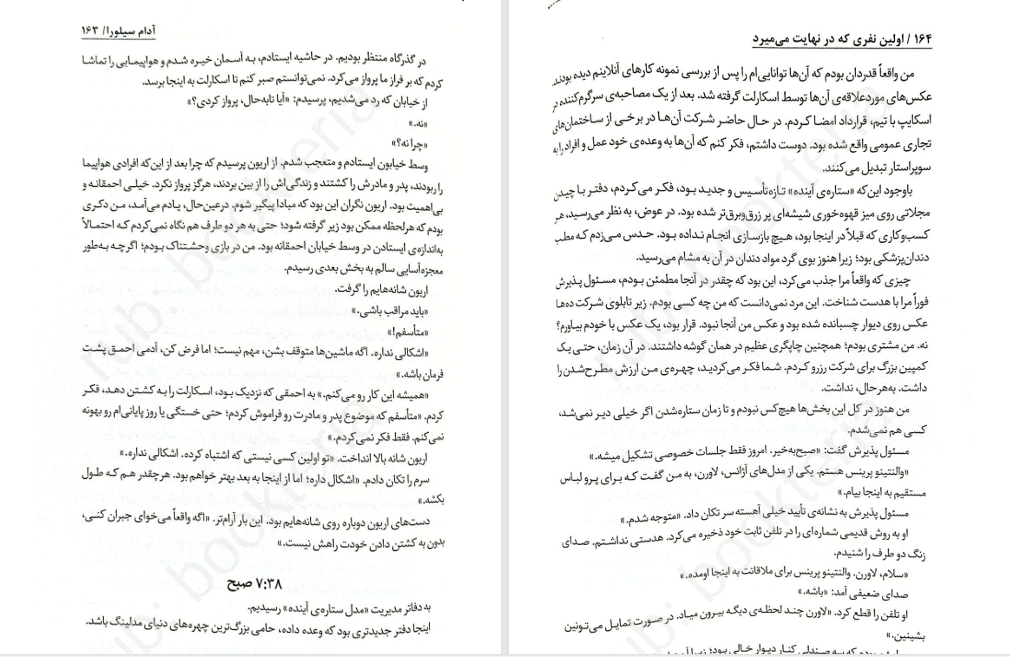 آدام سیلورا/ ۱۶۳
در گذرگاه منتظر بودیم. در حاشیه ایستادم، به آسمان خیره شدم و هواپیمایی را تماشا
کردم که بر فراز ما پرواز می‌کرد. نمی‌توانستم صبر کنم تا اسکارلت به اینجا برسد.
از خیابان که رد می‌شدیم، پرسیدم: «آیا تابه‌حال، پرواز کردی؟»
«نه.»
«چرا نه؟»
وسط خیابون ایستادم و متعجب شدم. از اریون پرسیدم که چرا بعد از این‌که افرادی هواپیما
را ربودند، پدر و مادرش را کشتند و زندگی‌اش را از بین بردند، هرگز پرواز نکرد. خیلی احمقانه و
بی‌اهمیت بود. اریون نگران این بود که مبادا پیگیر شوم. درعین‌حال، یادم می‌آمد، من دکری
بودم که هرلحظه ممکن بود زیر گرفته شود؛ حتی به هر دو طرف هم نگاه نمی‌کردم که احتمالاً
به‌اندازه‌ی ایستادن در وسط خیابان احمقانه بود. من در بازی وحشتناک بودم؛ اگرچه به‌طور
معجزه‌آسایی سالم به بخش بعدی رسیدم.
اریون شانه‌هایم را گرفت.
«باید مراقب باشی.»
«متأسفم!»
«اشکالی نداره. اگه ماشین‌ها متوقف بشن، مهم نیست؛ اما فرض کن، آدمی احمق پشت
فرمان باشه.»
«همیشه این کار رو می‌کنم.» به احمقی که نزدیک بود، اسکارلت را به کشتن دهد، فکر
کردم. «متأسفم که موضوع پدر و مادرت رو فراموش کردم؛ حتی خستگی یا روز پایانی‌ام رو بهونه
نمی‌کنم. فقط فکر نمی‌کردم.»
اریون شانه بالا انداخت. «تو اولین کسی نیستی که اشتباه کرده. اشکالی نداره.»
سرم را تکان دادم. «اشکال داره؛ اما از اینجا به بعد بهتر خواهم بود. هرچقدر هم که طول
بکشه.»
دست‌های اریون دوباره روی شانه‌هایم بود. این بار آرام‌تر. «اگه واقعاً می‌خوای جبران کنی،
بدون به کشتن دادن خودت راهش نیست.»
۷:۳۸ صبح
به دفاتر مدیریت «مدل ستاره‌ی آینده» رسیدیم.
اینجا دفتر جدیدتری بود که وعده داده، حامی بزرگ‌ترین چهره‌های دنیای مدلینگ باشد.
۱۶۴ / اولین نفری که در نهایت می‌میرد
من واقعاً قدردان بودم که آن‌ها توانایی‌ام را پس از بررسی نمونه کارهای آنلاینم دیده بودند.
عکس‌های موردعلاقه‌ی آن‌ها توسط اسکارلت گرفته شد. بعد از یک مصاحبه‌ی سرگرم‌کننده در
اسکایپ با تیم، قرارداد امضا کردم. در حال حاضر شرکت آن‌ها در برخی از ساختمان‌های
تجاری عمومی واقع شده بود. دوست داشتم، فکر کنم که آن‌ها به وعده‌ی خود عمل و افراد را به
سوپراستار تبدیل می‌کنند.
باوجود این‌که «ستاره‌ی آینده» تازه‌تأسیس و جدید بود، فکر می‌کردم، دفتر با چیدن
مجلاتی روی میز قهوه‌خوری شیشه‌ای پر زرق‌وبرق‌تر شده بود. در عوض، به نظر می‌رسید، هر
کسب‌وکاری که قبلاً در اینجا بود، هیچ بازسازی انجام نداده بود. حدس می‌زدم که مطب
دندان‌پزشکی بود؛ زیرا هنوز بوی گرد مواد دندان در آن به مشام می‌رسید.
چیزی که واقعاً مرا جذب می‌کرد، این بود که چقدر در آنجا مطمئن بودم، مسئول پذیرش
فوراً مرا با هدست شناخت. این مرد نمی‌دانست که من چه کسی بودم. زیر تابلوی شرکت ده‌ها
عکس روی دیوار چسبانده شده بود و عکس من آنجا نبود. قرار بود، یک عکس با خودم بیاورم؟
نه. من مشتری بودم؛ همچنین چاپگری عظیم در همان گوشه داشتند. در آن زمان، حتی یک
کمپین بزرگ برای شرکت رزرو کردم. شما فکر می‌کردید، چهره‌ی من ارزش مطرح‌شدن را
داشت. به‌هرحال، نداشت.
من هنوز در کل این بخش‌ها هیچ‌کس نبودم و تا زمان ستاره‌شدن اگر خیلی دیر نمی‌شد،
کسی هم نمی‌شدم.
مسئول پذیرش گفت: «صبح‌به‌خیر. امروز فقط جلسات خصوصی تشکیل میشه.»
«والنتینو پرینس هستم. یکی از مدل‌های آژانس، لاورن، به من گفت که برای پرو لباس
مستقیم به اینجا بیام.»
مسئول پذیرش به نشانه‌ی تأیید خیلی آهسته سر تکان داد. «متوجه شدم.»
او به روش قدیمی شماره‌ای را در تلفن ثابت خود ذخیره می‌کرد. هدستی نداشتم. صدای
زنگ دو طرف را شنیدم.
«سلام، لاورن. والنتینو پرینس برای ملاقاتت به اینجا اومده.»
صدای ضعیفی آمد: «باشه.»
او تلفن را قطع کرد. «لاورن چند لحظه‌ی دیگه بیرون میاد. در صورت تمایل می‌تونین
بشینین.»